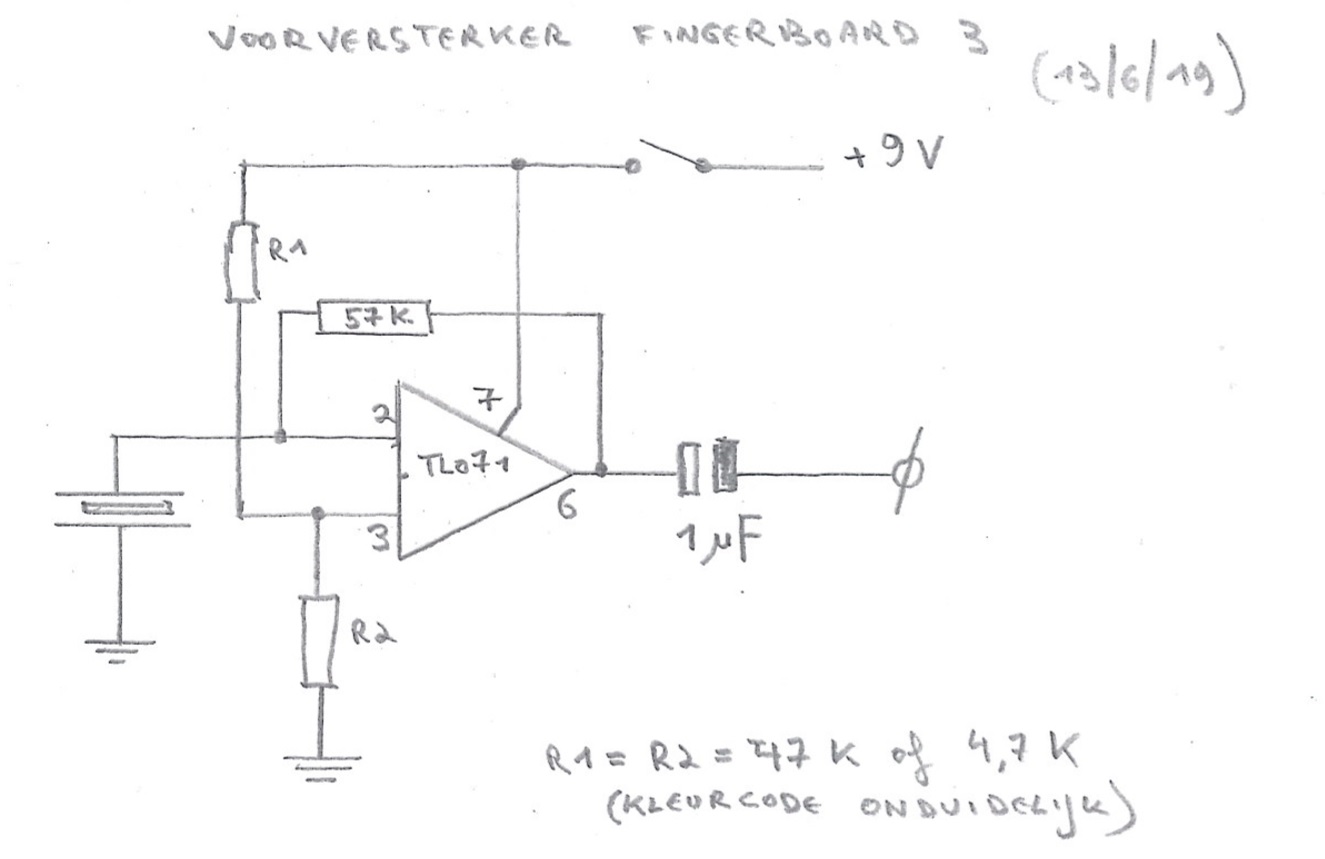 VOORVERSTERKER FINGERBOARD 3
(13/6/19)
+ 9 V
R1
57 K.
7
2
TL071
6
3
1 µF
R2
R1 = R2 = 47 K of 4,7 K
(KLEURCODE ONDUIDELIJK)